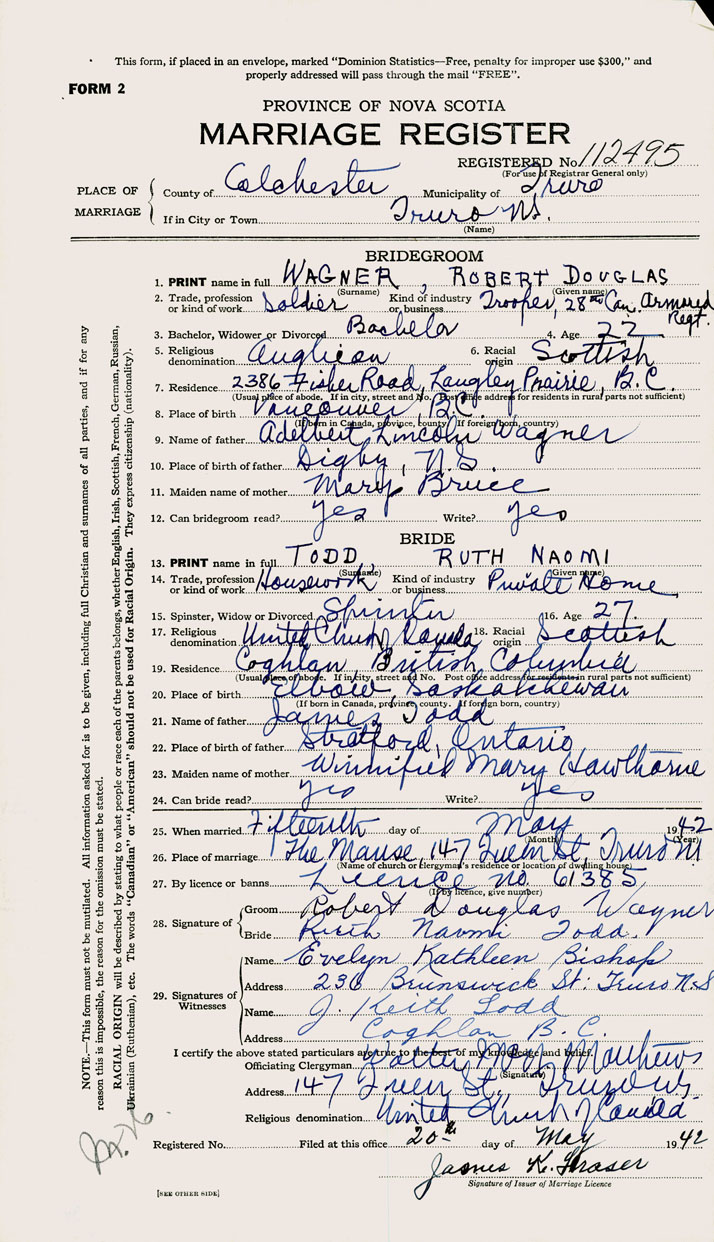 This form, if placed in an envelope, marked "Dominion Statistics—Free, penalty for improper use $300," and
properly addressed will pass through the mail "FREE".
FORM 2
PROVINCE OF NOVA SCOTIA
MARRIAGE REGISTER
REGISTERED No 112495
(For use of Registrar General only)
PLACE OF MARRIAGE
County of Colchester Municipality of Truro
If in City or Town Truro NS.
(Name)
BRIDEGROOM
1. PRINT name in full WAGNER, ROBERT DOUGLAS
(Surname) (Given name)
2. Trade, profession or kind of work Soldier Kind of industry or business Trooper, 28th Can. Armored Regt.
3. Bachelor, Widower or Divorced Bachelor 4. Age 22
5. Religious denomination Anglican 6. Racial origin Scottish
7. Residence 2386 Fisher Road, Langley Prairie, B.C.
(Usual place of abode. If in city, street and No. Post office address for residents in rural parts not sufficient)
8. Place of birth Vancouver, B.C.
(If born in Canada, province, county. If foreign born, country)
9. Name of father Adelbert Lincoln Wagner
10. Place of birth of father Digby, N.S.
11. Maiden name of mother Mary Bruce
12. Can bridegroom read? yes Write? yes
BRIDE
13. PRINT name in full TODD RUTH NAOMI
(Surname) (Given name)
14. Trade, profession or kind of work Housework Kind of industry or business Private Home
15. Spinster, Widow or Divorced Spinster 16. Age 27
17. Religious denomination United Church Canada 18. Racial origin Scottish
19. Residence Coghlan, British Columbia
(Usual place of abode. If in city, street and No. Post office address for residents in rural parts not sufficient)
20. Place of birth Elbow, Saskatchewan
(If born in Canada, province, county. If foreign born, country)
21. Name of father James Todd
22. Place of birth of father Stratford, Ontario
23. Maiden name of mother Winnifred Mary Hawthorne
24. Can bride read? yes Write? yes
25. When married Fifteenth day of May 1942
(Month) (Year)
26. Place of marriage The Manse, 147 Queen St, Truro
(Name of church or clergyman's residence or location of dwelling house)
27. By licence or banns Licence no. 61385
(If by licence, give number)
28. Signature of
Groom Robert Douglas Wagner
Bride Ruth Naomi Todd.
29. Signatures of Witnesses
Name Evelyn Kathleen Bishop
Address 236 Brunswick St: Truro N.S
Name J. Keith Todd
Address Coghlan B.C.
I certify the above stated particulars are true to the best of my knowledge and belief.
Officiating Clergyman Mathews
(Signature)
Address 147 Queen St,
Religious denomination United Church of Canada
Registered No. Filed at this office 20th day of May 1942
James K. Fraser
Signature of Issuer of Marriage Licence
[SEE OTHER SIDE]
NOTE.—This form must not be mutilated. All information asked for is to be given, including full Christian and surnames of all parties, and if for any
reason this is impossible, the reason for the omission must be stated.
RACIAL ORIGIN will be described by stating to what people or race each of the parents belongs, whether English, Irish, Scottish, French, German, Russian,
Ukrainian (Ruthenian), etc. The words "Canadian" or "American" should not be used for Racial Origin. They express citizenship (nationality).